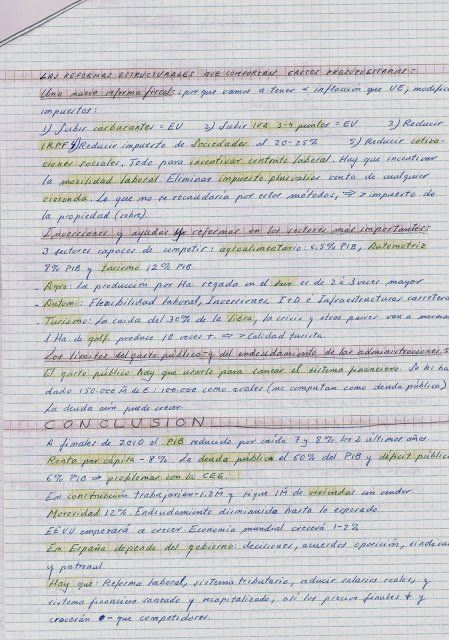 LAS REFORMAS ESTRUCTURALES QUE COMPORTAN GASTOS PRESUPUESTARIOS:
Una nueva reforma fiscal: porque vamos a tener < inflacción que UE, modific
impuestos:
1) Subir carburantes = EU 2) Subir IVA 3-4 puntos = EU 3) Reducir
IRPF 4) Reducir impuesto de Sociedades al 20-25% 5) Reducir cotiza-
ciones sociales. Todo para incentivar contrato laboral. Hay que incentivar
la movilidad laboral. Eliminar impuesto plusvalías venta de cualquier
vivienda. Lo que no se recaudaría por estos métodos, => > impuesto de
la propiedad (sobre).
Inversiones y ayudas reformas en los sectores más importantes:
3 sectores capaces de competir: agroalimentario: 6,5% PIB, Automotriz
8% PIB y turismo 12% PIB.
- Agro: La producción por Ha. regada en el sur es de 2 ó 3 veces mayor
- Autom: Flexibilidad laboral, Inversiones, I+D e Infraestructuras carretera
- Turismo: La caída del 30% de la libra, la crisis y otros países van a mermar
1 Ha. de golf produce 10 veces +. => > Calidad turista
Los límites del gasto público y del endeudamiento de las administraciones.
El gasto público hay que usarlo para sanear el sistema financiero. Se ha
dado 150.000 M de €: 100.000 como avales (no computan como deuda pública)
La deuda aún puede crecer.
CONCLUSION
A finales de 2010 el PIB reducido por caída 7 y 8% los 2 últimos años
Renta per cápita - 8%. La deuda pública el 60% del PIB y déficit público
6% PIB => problemas con la CEE.
En construcción trabajarían 1,2M y sigue 1M de viviendas sin vender.
Morosidad 12%. Endeudamiento disminuido hasta lo esperado
EEUU empezará a crecer. Economía mundial crecerá 1-2%
En España depende del gobierno: decisiones, acuerdos oposición, sindica
y patronal
Hay que: Reforma laboral, sistema tributario, reducir salarios reales, y
sistema financiero saneado y recapitalizado, así los precios finales ↓ y
crecerán - que competidores.